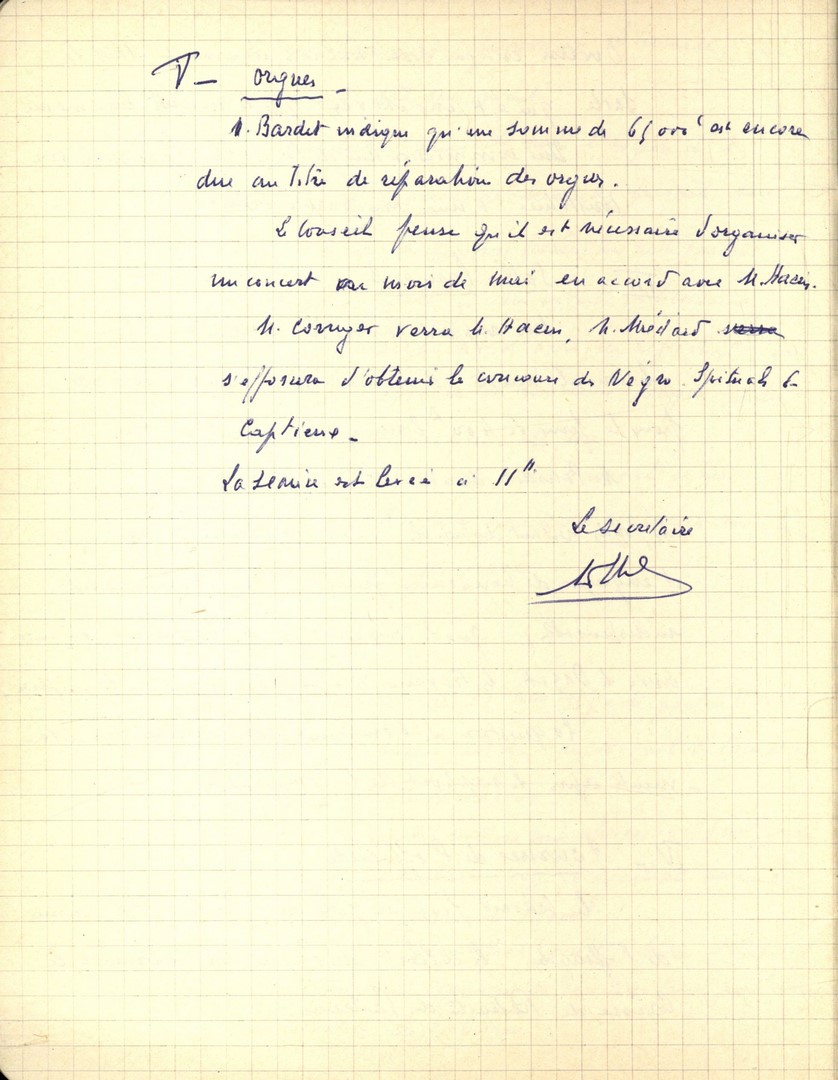 V - orgues -
M. Bardet indique qu'une somme de 65 000 f est encore
due au titre de réparation des orgues.
Le Conseil pense qu'il est nécessaire d'organiser
un concert au mois de mai en accord avec M.
M. verra M. M. Médard verra
s'efforcera d'obtenir le concours des Négro Spirituals de
La séance est levée à 11 h
Le secrétaire